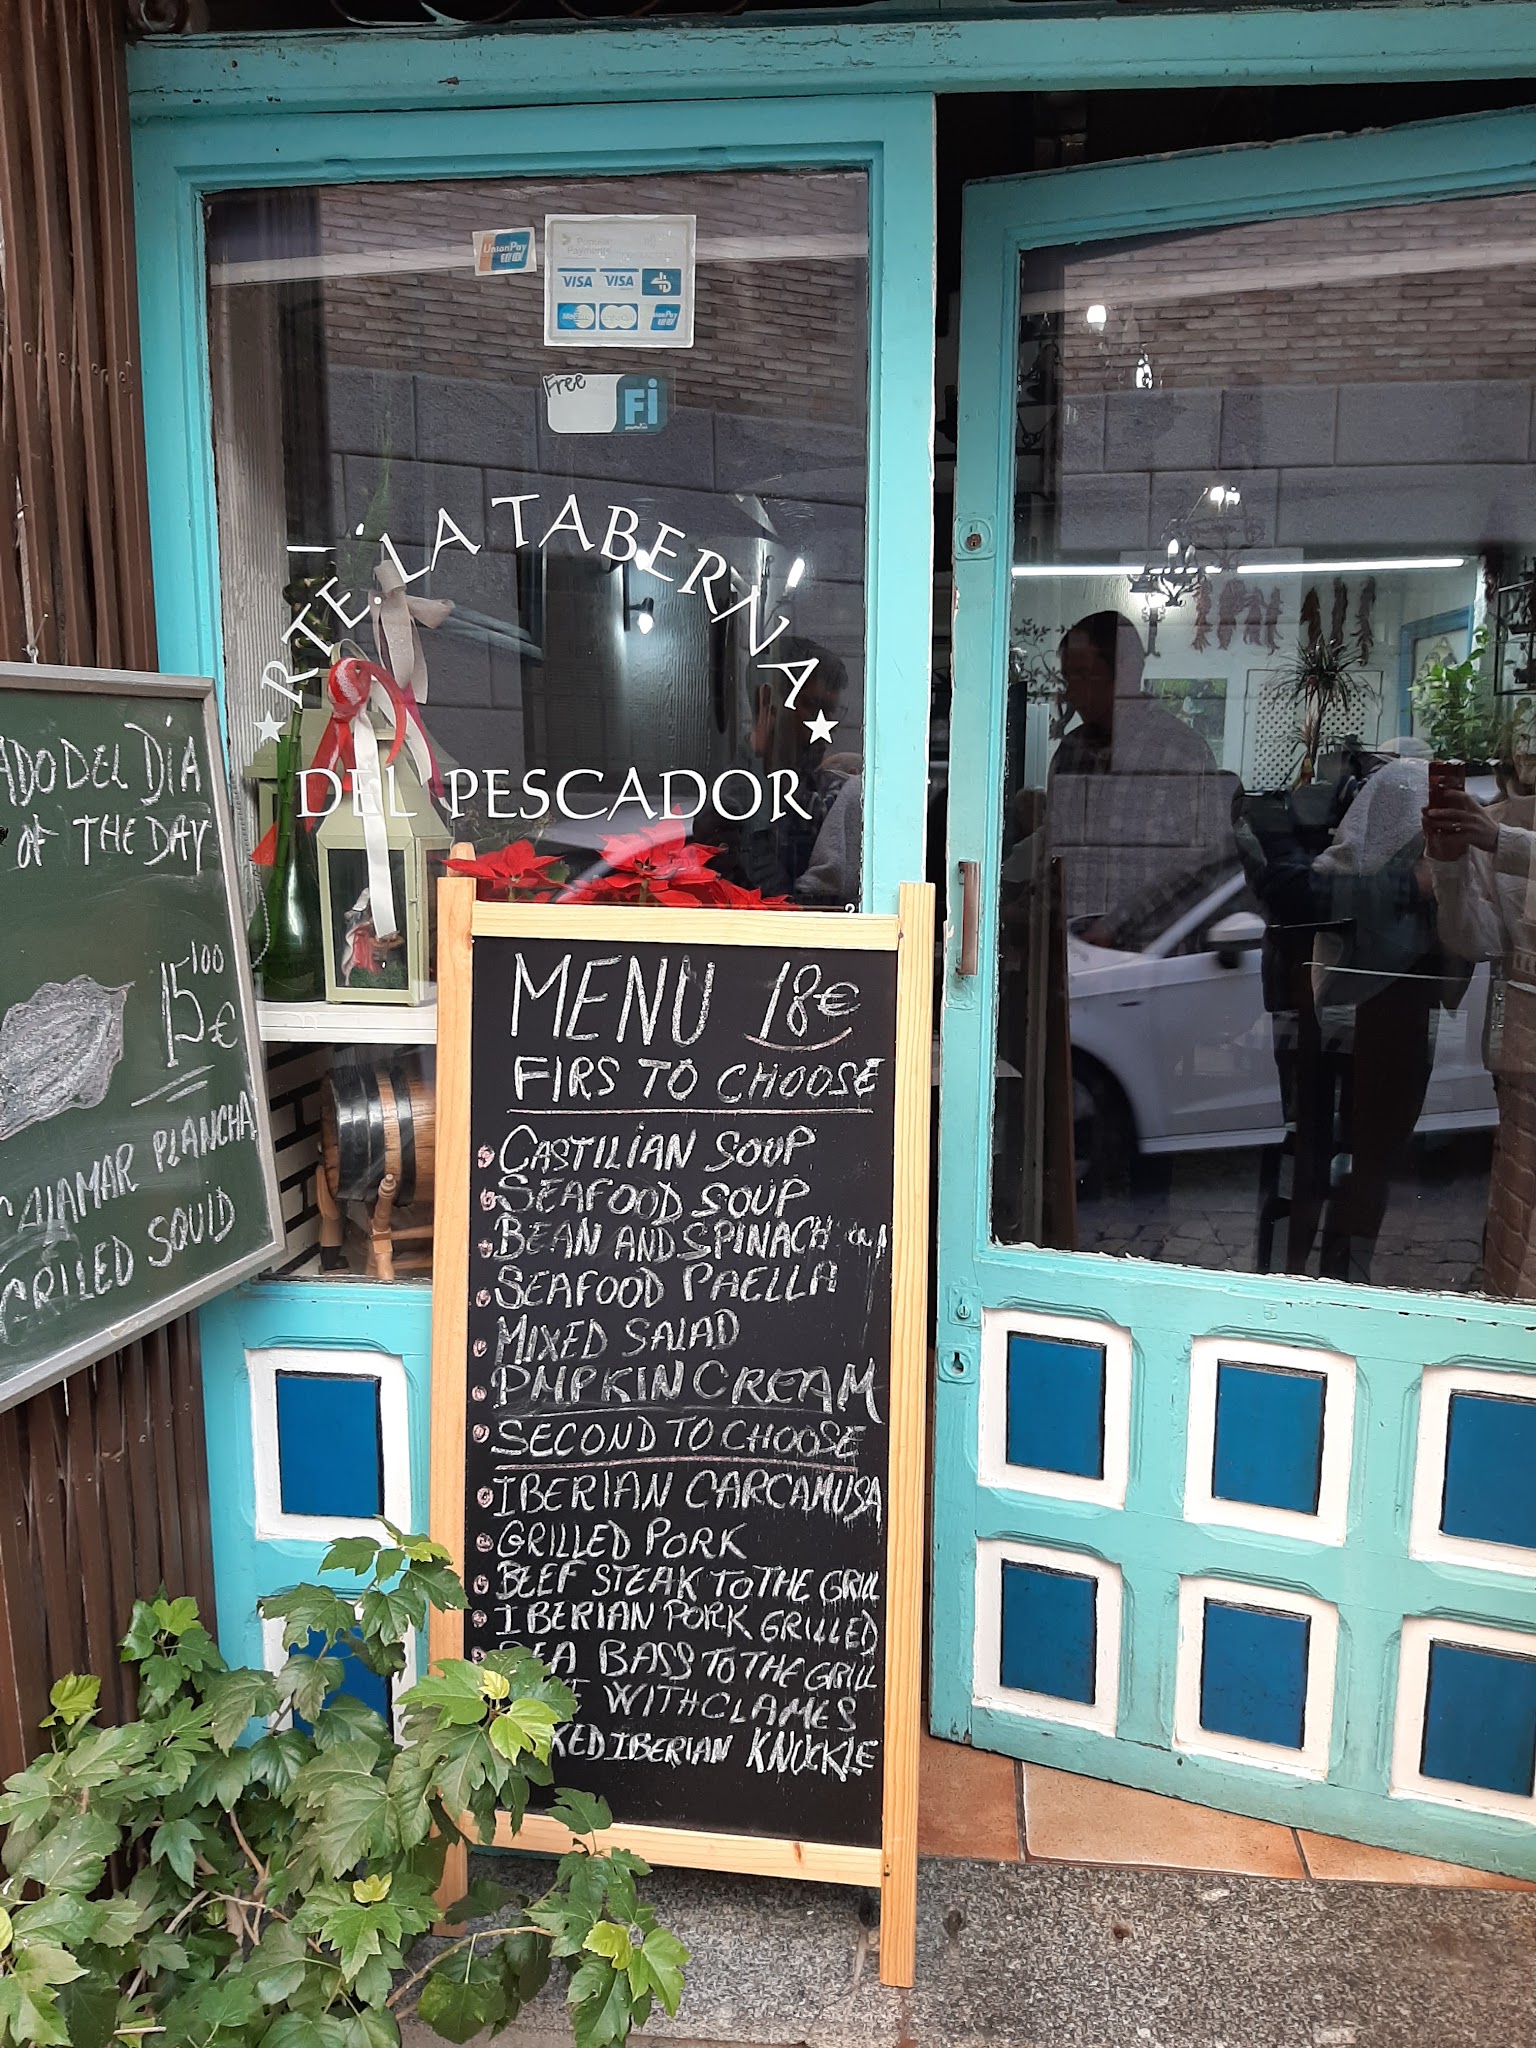 UnionPay
VISA VISA
UnionPay
Free
Fi
RTE: LA TABERNA
DEL PESCADOR
DEL DÍA
OF THE DAY
15,00
€
CALAMAR PLANCHA
GRILLED SQUID
MENU 18€
FIRS TO CHOOSE
CASTILIAN SOUP
SEAFOOD SOUP
BEAN AND SPINACH
SEAFOOD PAELLA
MIXED SALAD
PMPKIN CREAM
SECOND TO CHOOSE
IBERIAN CARCAMUSA
GRILLED PORK
BEEF STEAK TO THE GRILL
IBERIAN PORK GRILLED
BASS TO THE GRILL
WITH CLAMES
IBERIAN KNUCKLE